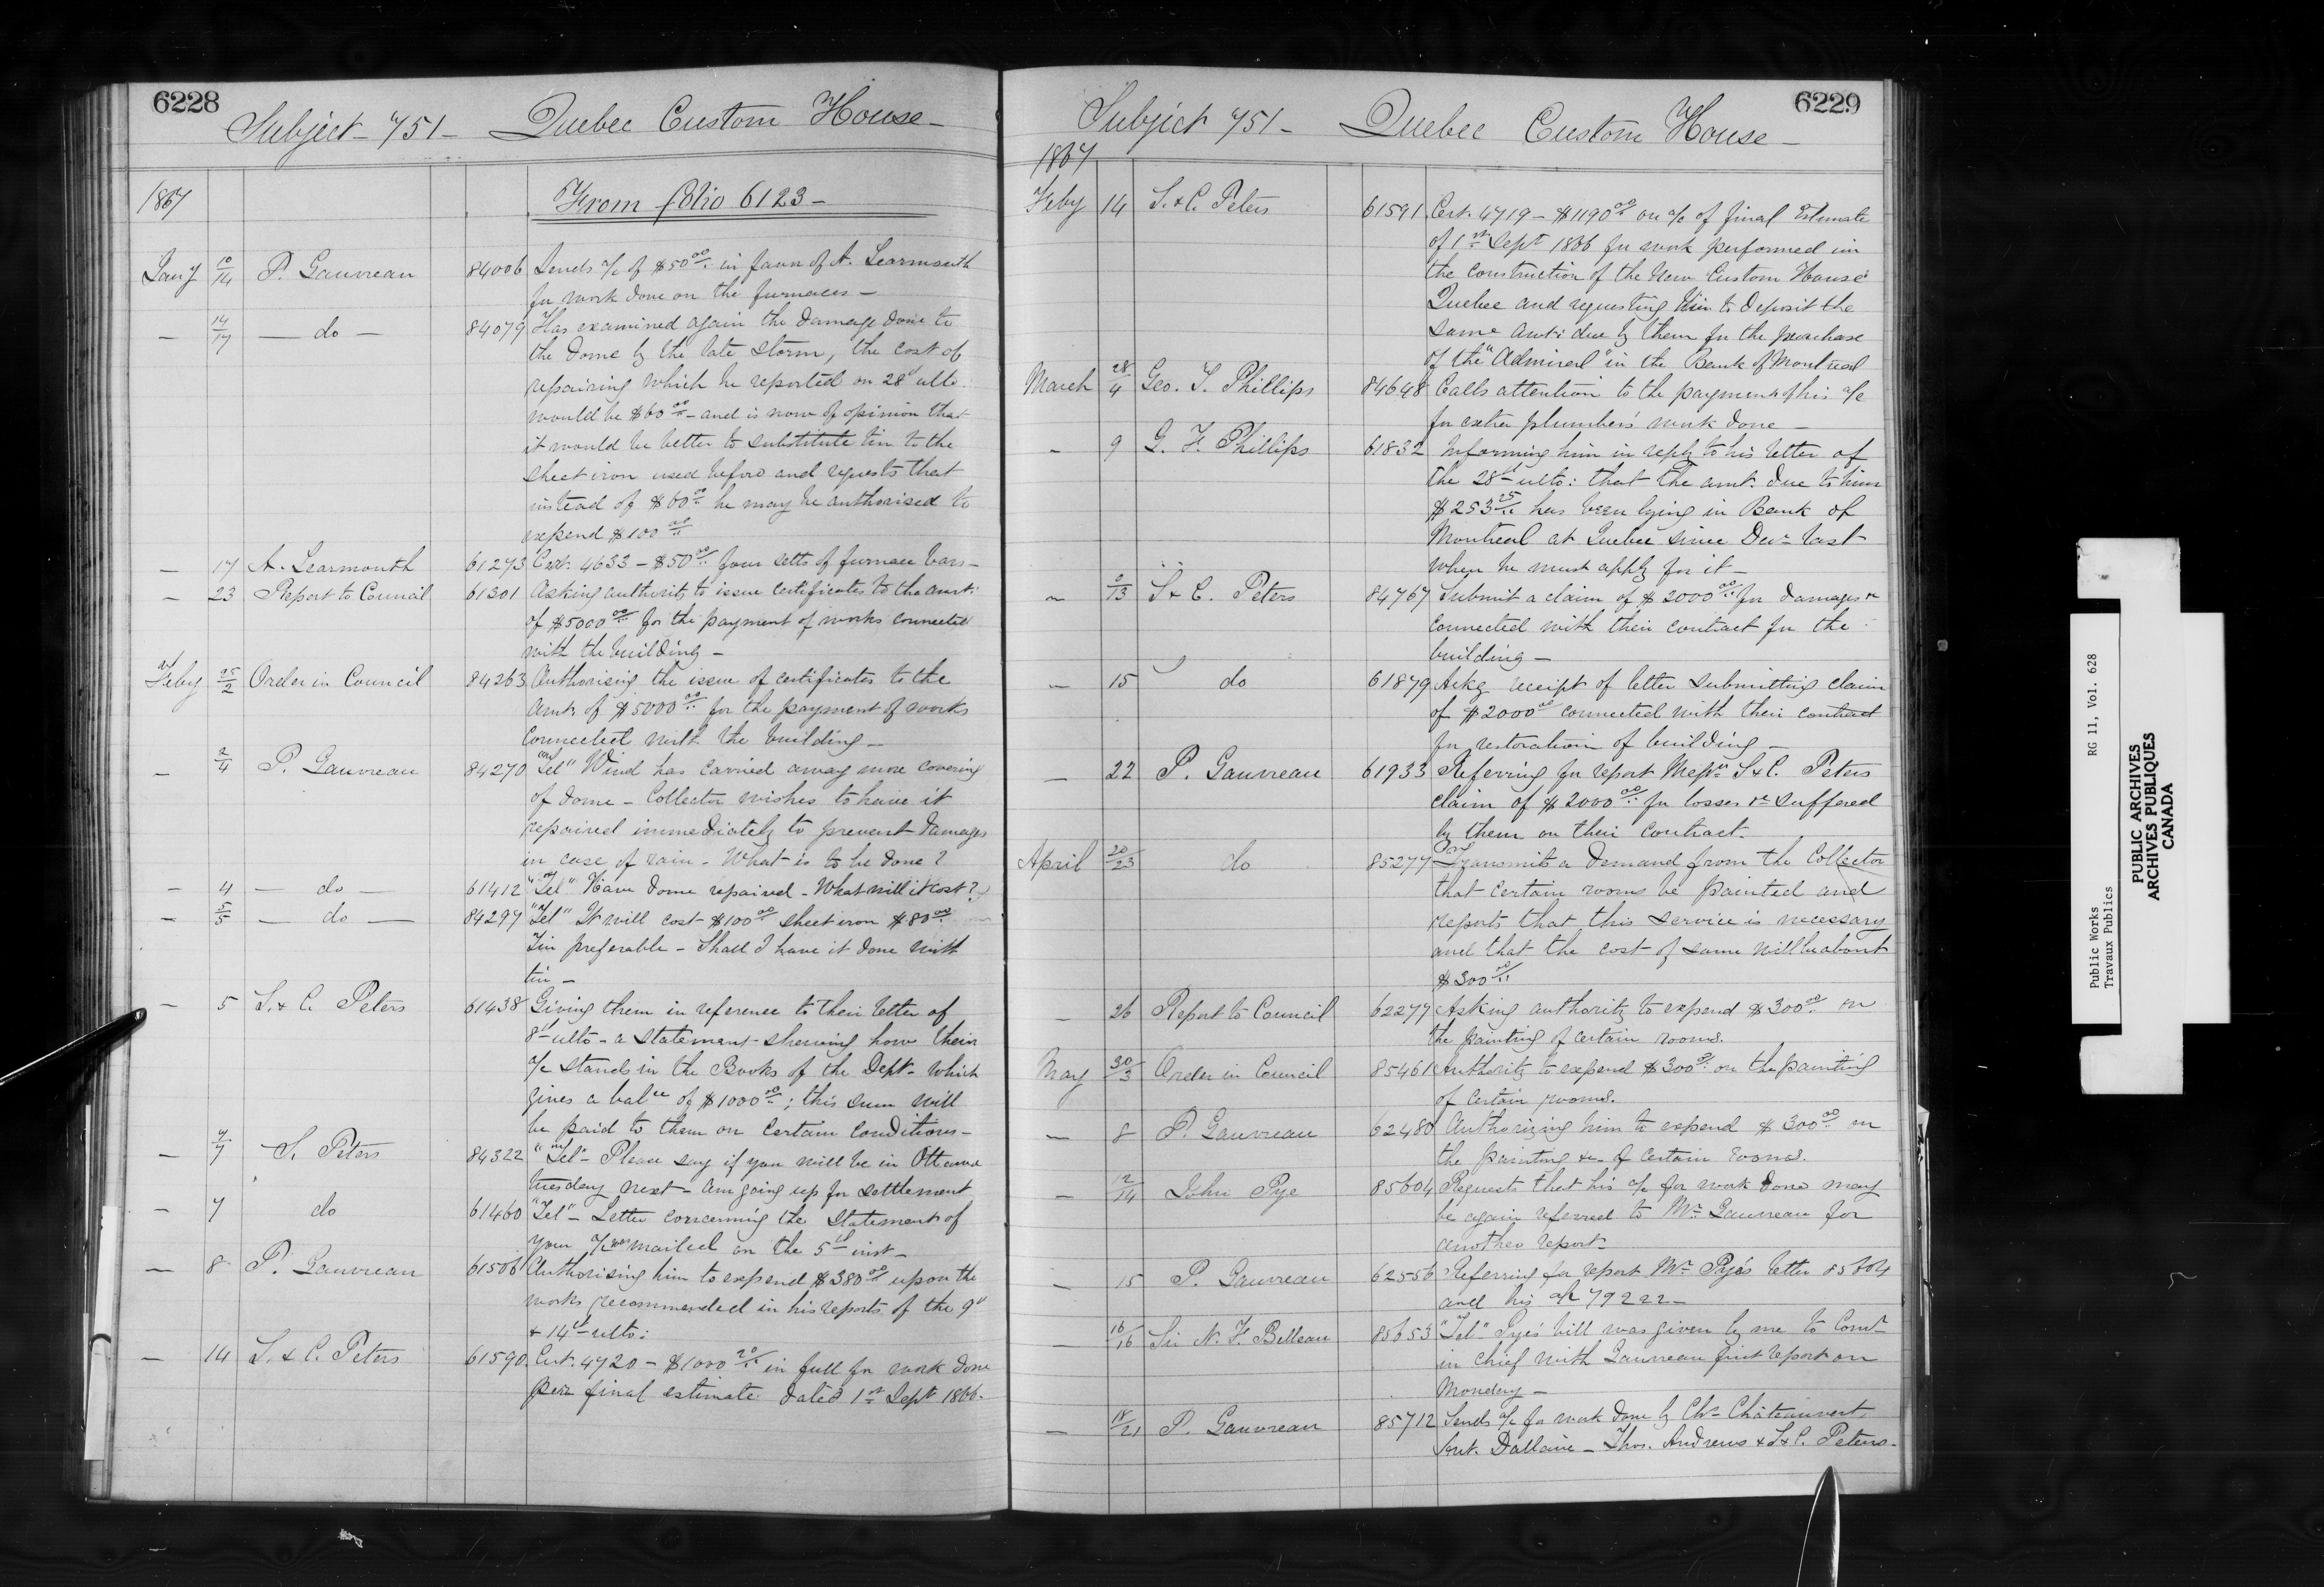 6228
Subject - 751 - Quebec Custom House -
1867
From folio 6123 -
Jany 10/14 P. Gauvreau 84006 Sends a/c of $50.00 in favor of A. Learmonth
for work done on the furnaces -
- 14/17 - do - 84079 Has examined again the damage done to
the dome by the late storm, the cost of
repairing which he reported on 28th ulto.
would be $60.00 - and is now of opinion that
it would be better to substitute tin to the
sheet iron used before and requests that
instead of $60.00 he may be authorised to
expend $100.00
- 17 A. Learmonth 61273 Cert. 4633 - $50.00 four setts of furnace bars -
- 23 Report to Council 61301 Asking authority to issue certificates to the amt:
of $5000.00 for the payment of works connected
with the building -
Feby 25/2 Order in Council 84263 Authorising the issue of certificates to the
Amt. of $5000.00 for the payment of works
connected with the building -
- 2/4 P. Gauvreau 84270 "Tel" Wind has carried away more covering
of dome - Collector wishes to have it
repaired immediately to prevent damages
in case of rain - What is to be done?
- 4 - do - 61412 "Tel" Have dome repaired - What will it cost?
- 5/5 - do - 84297 "Tel" It will cost $100.00 sheet iron $80.00
Tin preferable - Shall I have it done with
tin -
- 5 S. & C. Peters 61438 Giving them in reference to their letter of
8th ulto - a statement shewing how their
a/c stands in the Books of the Dept. which
gives a balce of $1000.00; this sum will
be paid to them on certain conditions -
- 7/7 S. Peters 84322 "Tel" - Please say if you will be in Ottawa
tuesday next - Am going up for settlement
- 7 do 61460 "Tel" - Letter concerning the statement of
your a/c was mailed on the 5th inst -
- 8 P. Gauvreau 61506 Authorising him to expend $380.00 upon the
works recommended in his reports of the 9th
& 14th ulto:
- 14 S. & C. Peters 61590 Cert. 4720 - $1000.20 in full for work done
per final estimate dated 1st Sept 1866.
6229
Subject 751 - Quebec Custom House -
1867
Feby 14 S. & C. Peters 61591 Cert. 4719 - $1190.00 on a/c of final Estimate
of 1st Sept 1866 for work performed in
the construction of the New Custom House
Quebec and requesting him to deposit the
same amt: due by them for the purchase
of the "Admiral" in the Bank of Montreal
March 28/4 Geo. T. Phillips 84648 Calls attention to the payment of his a/c
for extra plumber's work done -
- 9 G. F. Phillips 61832 Informing him in reply to his letter of
the 28th ulto: that the amt. due to him
$253.25 has been lying in Bank of
Montreal at Quebec since Decr last
when he must apply for it -
- 9/13 S & C. Peters 84767 Submit a claim of $2000.00 for damages &c
connected with their contract for the
building -
- 15 do 61879 Ackg receipt of letter submitting claim
of $2000.00 connected with their contract
for restoration of building -
- 22 P. Gauvreau 61933 Referring for report Messrs S & C. Peters
claim of $2000.00 for losses &c suffered
by them on their contract.
April 20/23 do 85277 Transmits a demand from the Collector
that certain rooms be painted and
reports that this service is necessary
and that the cost of same will be about
$300.00
- 26 Report to Council 62277 Asking authority to expend $300.00 on
the painting of certain rooms.
May 30/3 Order in Council 85461 Authority to expend $300.00 on the painting
of certain rooms.
- 8 P. Gauvreau 62480 Authorizing him to expend $300.00 on
the painting &c of certain rooms.
- 12/14 John Pye 85604 Requests that his a/c for work done may
be again referred to Mr Gauvreau for
another report -
- 15 P. Gauvreau 62556 Referring for report Mr Pye's letter 85604
and his a/c 79222 -
- 16/16 Sir N. F. Belleau 85653 "Tel" Pye's bill was given by me to Comr
in chief with Gauvreau first report on
Monday -
- 18/21 P. Gauvreau 85712 Sends a/c for work done by Chs Châteauvert,
Ant. Dallaire - Thos. Andrews & S & C. Peters -
Public Works RG 11, Vol. 628
Travaux Publics
PUBLIC ARCHIVES
ARCHIVES PUBLIQUES
CANADA